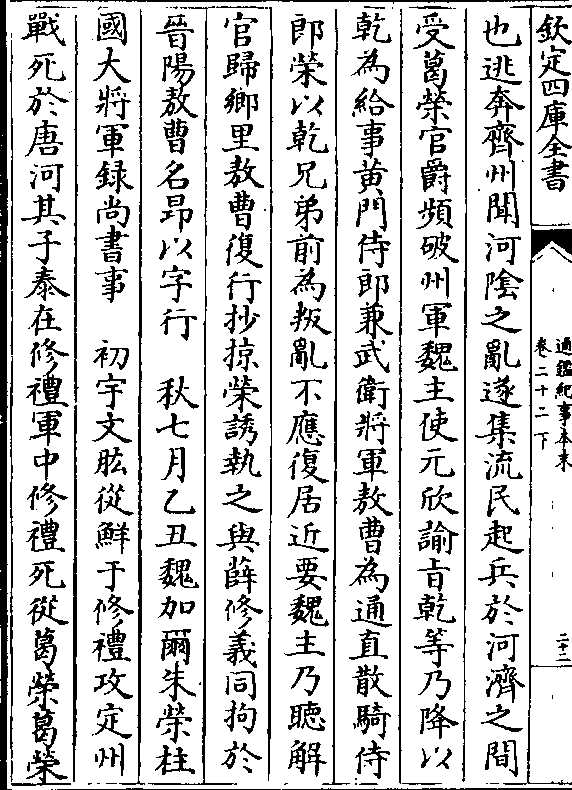 欽定四庫全書
通鑑紀事本末
卷二十二下
二十二
也逃奔齊州聞河陰之亂遂集流民起兵於河濟之間
受葛榮官爵頻破州軍魏主使元欣諭旨乾等乃降以
乾為給事黄門侍郎兼武衛將軍敖曹為通直散騎侍
郎榮以乾兄弟前為叛亂不應復居近要魏主乃聽解
官歸鄉里敖曹復行抄掠榮誘執之與薛修義同拘於
晉陽敖曹名昂以字行　秋七月乙丑魏加爾朱榮柱
國大將軍録尚書事　初宇文肱從鮮于修禮攻定州
戰死於唐河其子泰在修禮軍中修禮死從葛榮葛榮